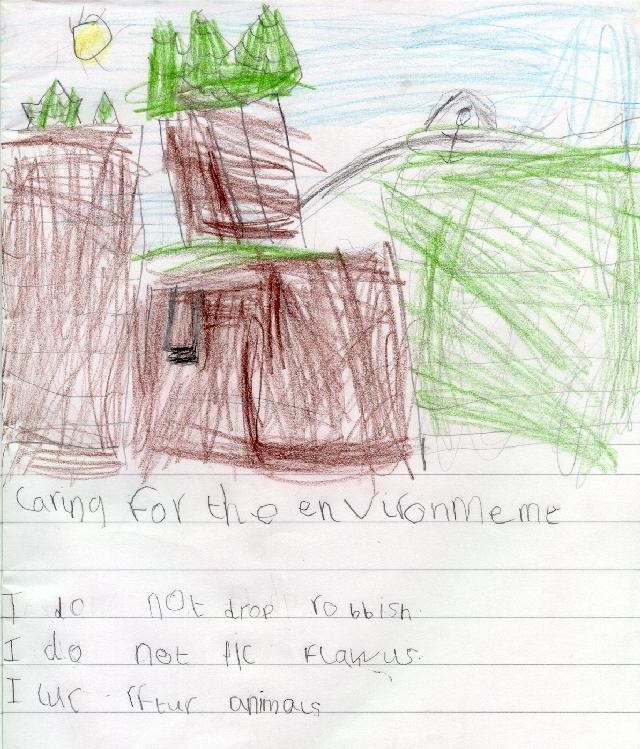 caring for the environmeme
I do not drop robbish.
I do not pic flawus.
I luc rftur animals